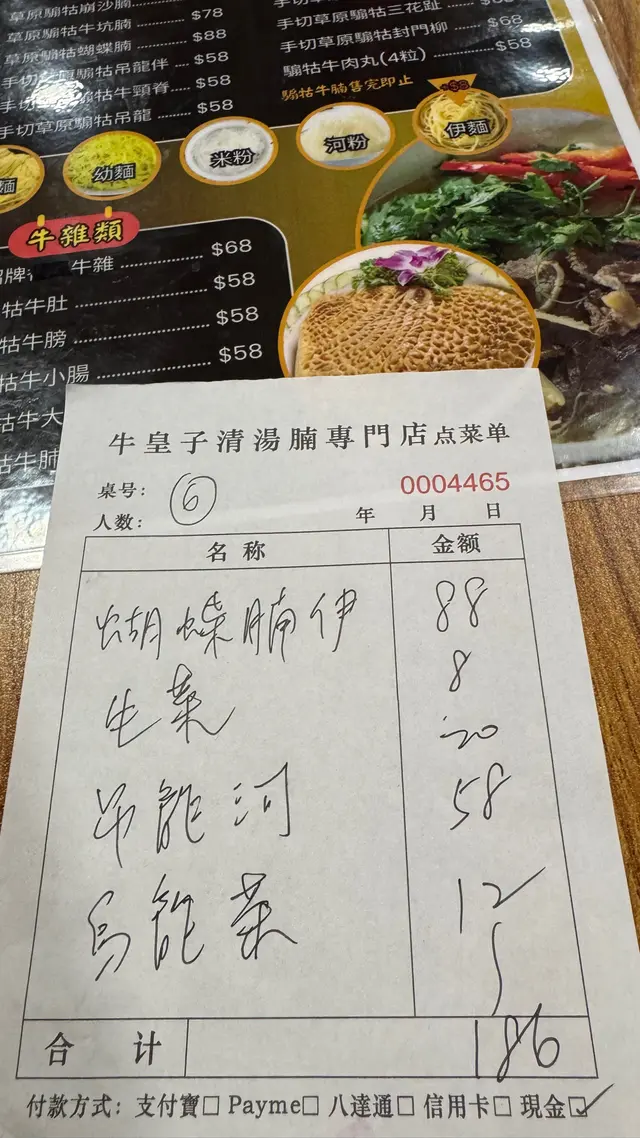 草原騸牯崩沙腩
草原騸牯牛坑腩 $78
草原騸牯蝴蝶腩 $88
手切草原騸牯吊龍伴 $58
手切草原騸牯牛頸脊 $58
手切草原騸牯吊龍 $58
手切草原騸牯三花趾
手切草原騸牯封門柳 $68
騸牯牛肉丸(4粒) $58
騸牯牛腩售完即止
+$8
麵
幼麵
米粉
河粉
伊麵
牛雜類
牌 牛雜 $68
牯牛肚 $58
牯牛膀 $58
牯牛小腸 $58
牯牛大
牯牛肺
牛皇子清湯腩專門店点菜单
桌号: 6
0004465
人数:
年 月 日
名称 金额
蝴蝶腩伊 88
生菜 8
20
吊龍河 58
烏龍茶 12
合计 186
付款方式: 支付寶□ Payme□ 八達通□ 信用卡□ 現金☑